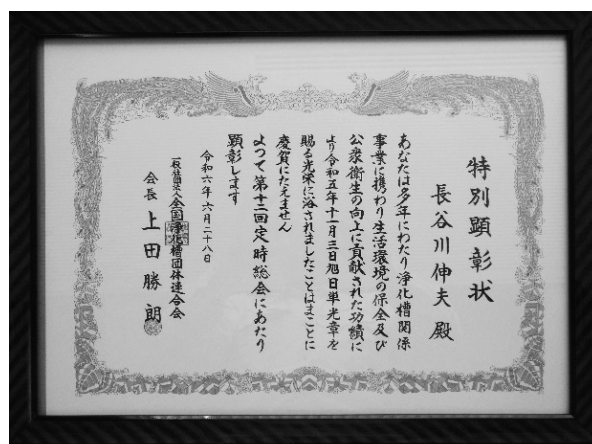 特別顕彰状
長谷川伸夫 殿
あなたは多年にわたり浄化槽関係
事業に携わり生活環境の保全及び
公衆衛生の向上に貢献された功績に
より令和五年十一月三日旭日単光章を
賜る光栄に浴されましたことはまことに
慶賀にたえません
よって第十二回定時総会にあたり
顕彰します
令和六年六月二十八日
一般社団法人全国浄化槽団体連合会
会長 上田勝朗